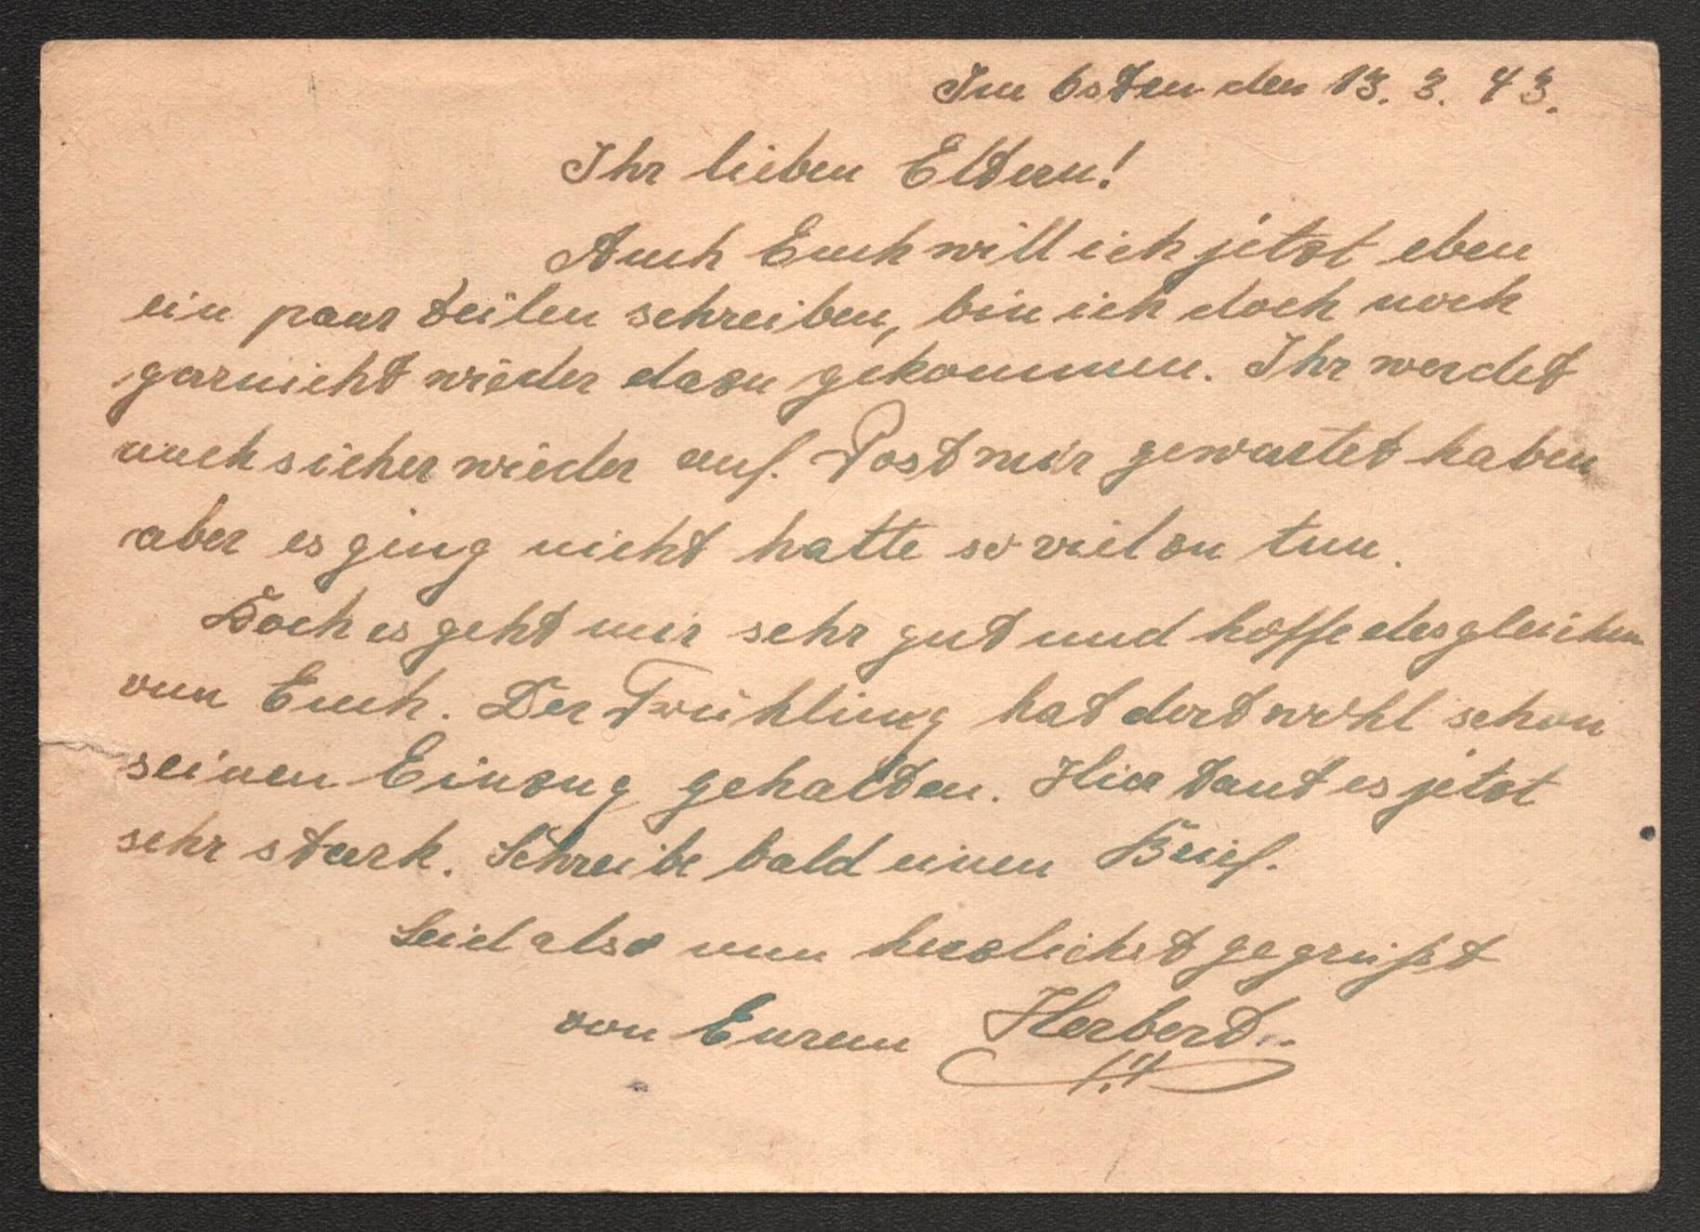 Im Osten den 13. 3. 43.
Ihr lieben Eltern!
Auch Euch will ich jetzt eben
ein paar Zeilen schreiben, bin ich doch noch
garnicht wieder dazu gekommen. Ihr werdet
auch sicher wieder auf. Post mir gewartet haben
aber es ging nicht hatte so viel zu tun.
Doch es geht mir sehr gut und hoffe desgleichen
von Euch. Der Frühling hat dort wohl schon
seinen Einzug gehalten. Hier taut es jetzt
sehr stark. Schreibe bald einen Brief.
Seid also nun herzlichst gegrüßt
von Eurem Herbert.